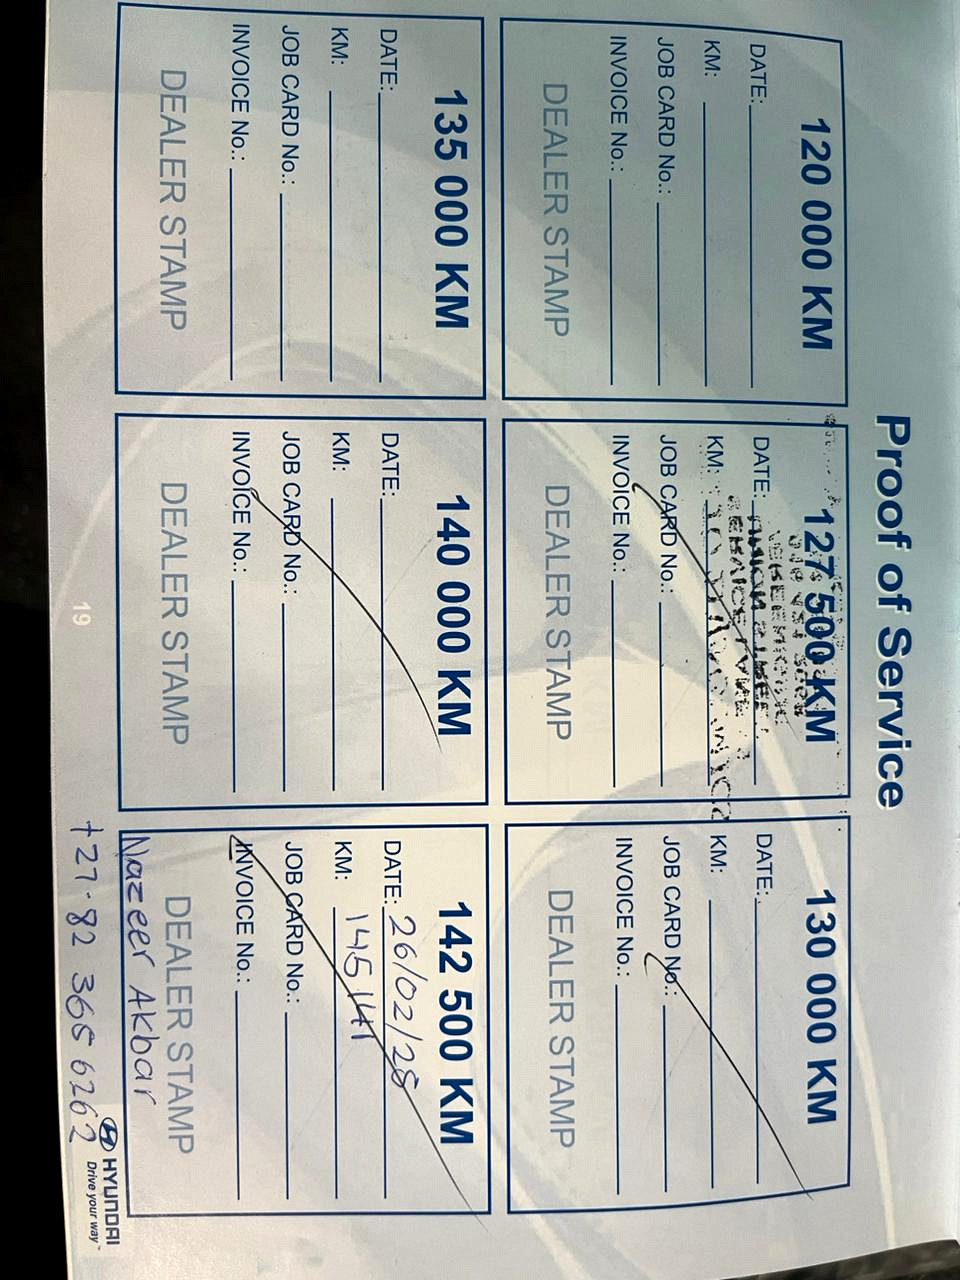 Proof of Service
120 000 KM
DATE:
KM:
JOB CARD No.:
INVOICE No.:
DEALER STAMP
127 500 KM
DATE:
KM:
JOB CARD No.:
INVOICE No.:
DEALER STAMP
130 000 KM
DATE:
KM:
JOB CARD No.:
INVOICE No.:
DEALER STAMP
135 000 KM
DATE:
KM:
JOB CARD No.:
INVOICE No.:
DEALER STAMP
140 000 KM
DATE:
KM:
JOB CARD No.:
INVOICE No.:
DEALER STAMP
142 500 KM
DATE: 26/02/28
KM: 145141
JOB CARD No.:
INVOICE No.:
DEALER STAMP
Nazeer Akbar
+27·82 365 6262
19
HYUNDAI
Drive your way™